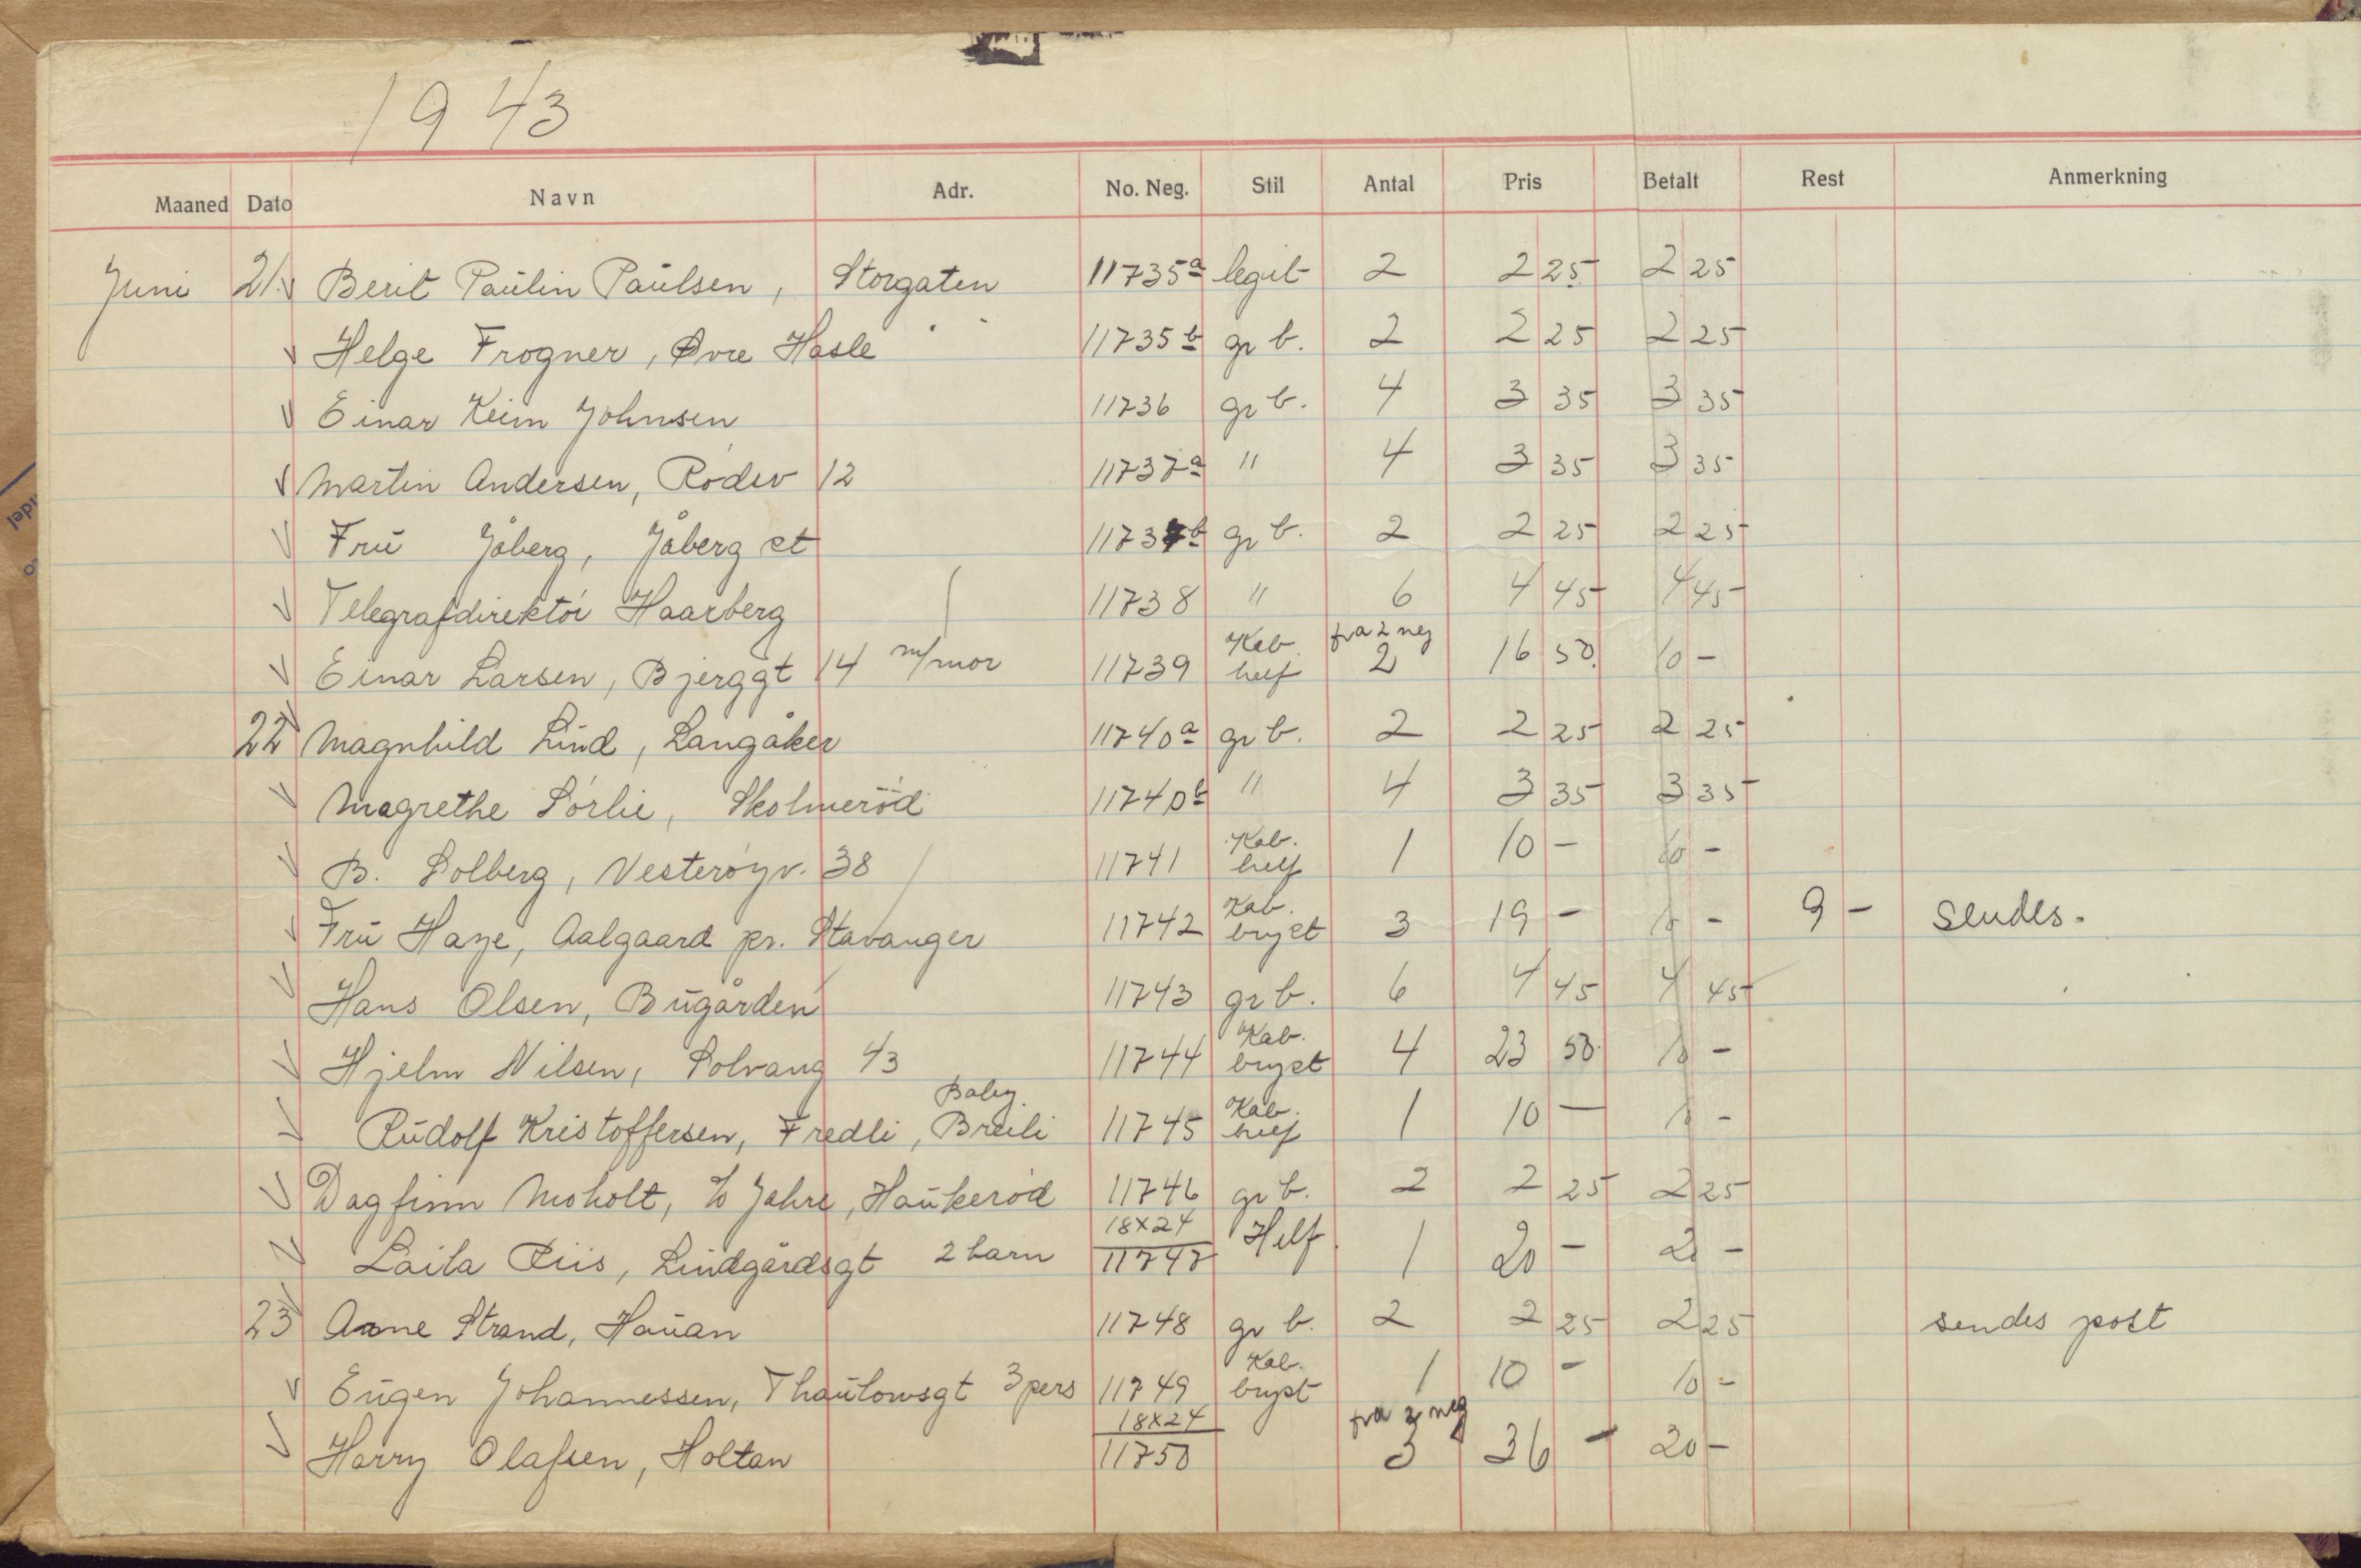 1943
Maaned Dato Navn Adr. No. Neg. Stil Antal Pris Betalt Rest Anmerkning
Juni 21. Berit Paulin Paulsen, Storgaten 11735a legit 2 2 25 2 25
Helge Frogner, Øvre Hasle 11735b gr b. 2 2 25 2 25
Einar Keim Johnsen 11736 gr b. 4 3 35 3 35
Martin Andersen, Rødsv 12 11737a " 4 3 35 3 35
Fru Jåberg, Jåberg st 11737b gr b. 2 2 25 2 25
Telegrafdirektör Haarberg 11738 " 6 4 45 4 45
Einar Larsen, Bjerggt 14 m/mor 11739 Kab. helf fra 2 neg 2 16 50. 10 -
22 Magnhild Lind, Langåker 11740a gr b. 2 2 25 2 25
Magrethe Sörlie, Skolmeröd 11740b " 4 3 35 3 35
B. Solberg, Vesteröyv. 38 11741 Kab. helf 1 10 - 10 -
Fru Haye, Aalgaard pr. Stavanger 11742 Kab. bryst 3 19 - 10 - 9 - Sendes.
Hans Olsen, Bugården 11743 gr b. 6 4 45 4 45
Hjelm Nilsen, Solvang 43 11744 Kab. bryst 4 23 50. 10 -
Baby.
Rudolf Kristoffersen, Fredli, Breili 11745 Kab. helf 1 10 - 10 -
Dagfinn Moholt, %o Jahre, Haukeröd 11746 gr b. 2 2 25 2 25
Laila Riis, Lindgårdsgt 2 barn 18x24 11747 Helf. 1 20 - 20 -
23 Anne Strand, Hauan 11748 gr b. 2 2 25 2 25 sendes post
Eugen Johannessen, Thaulowsgt 3 pers 11749 Kab. bryst 1 10 - 10 -
Harry Olafsen, Holtan 18x24 11750 fra 3 neg 3 36 - 20 -